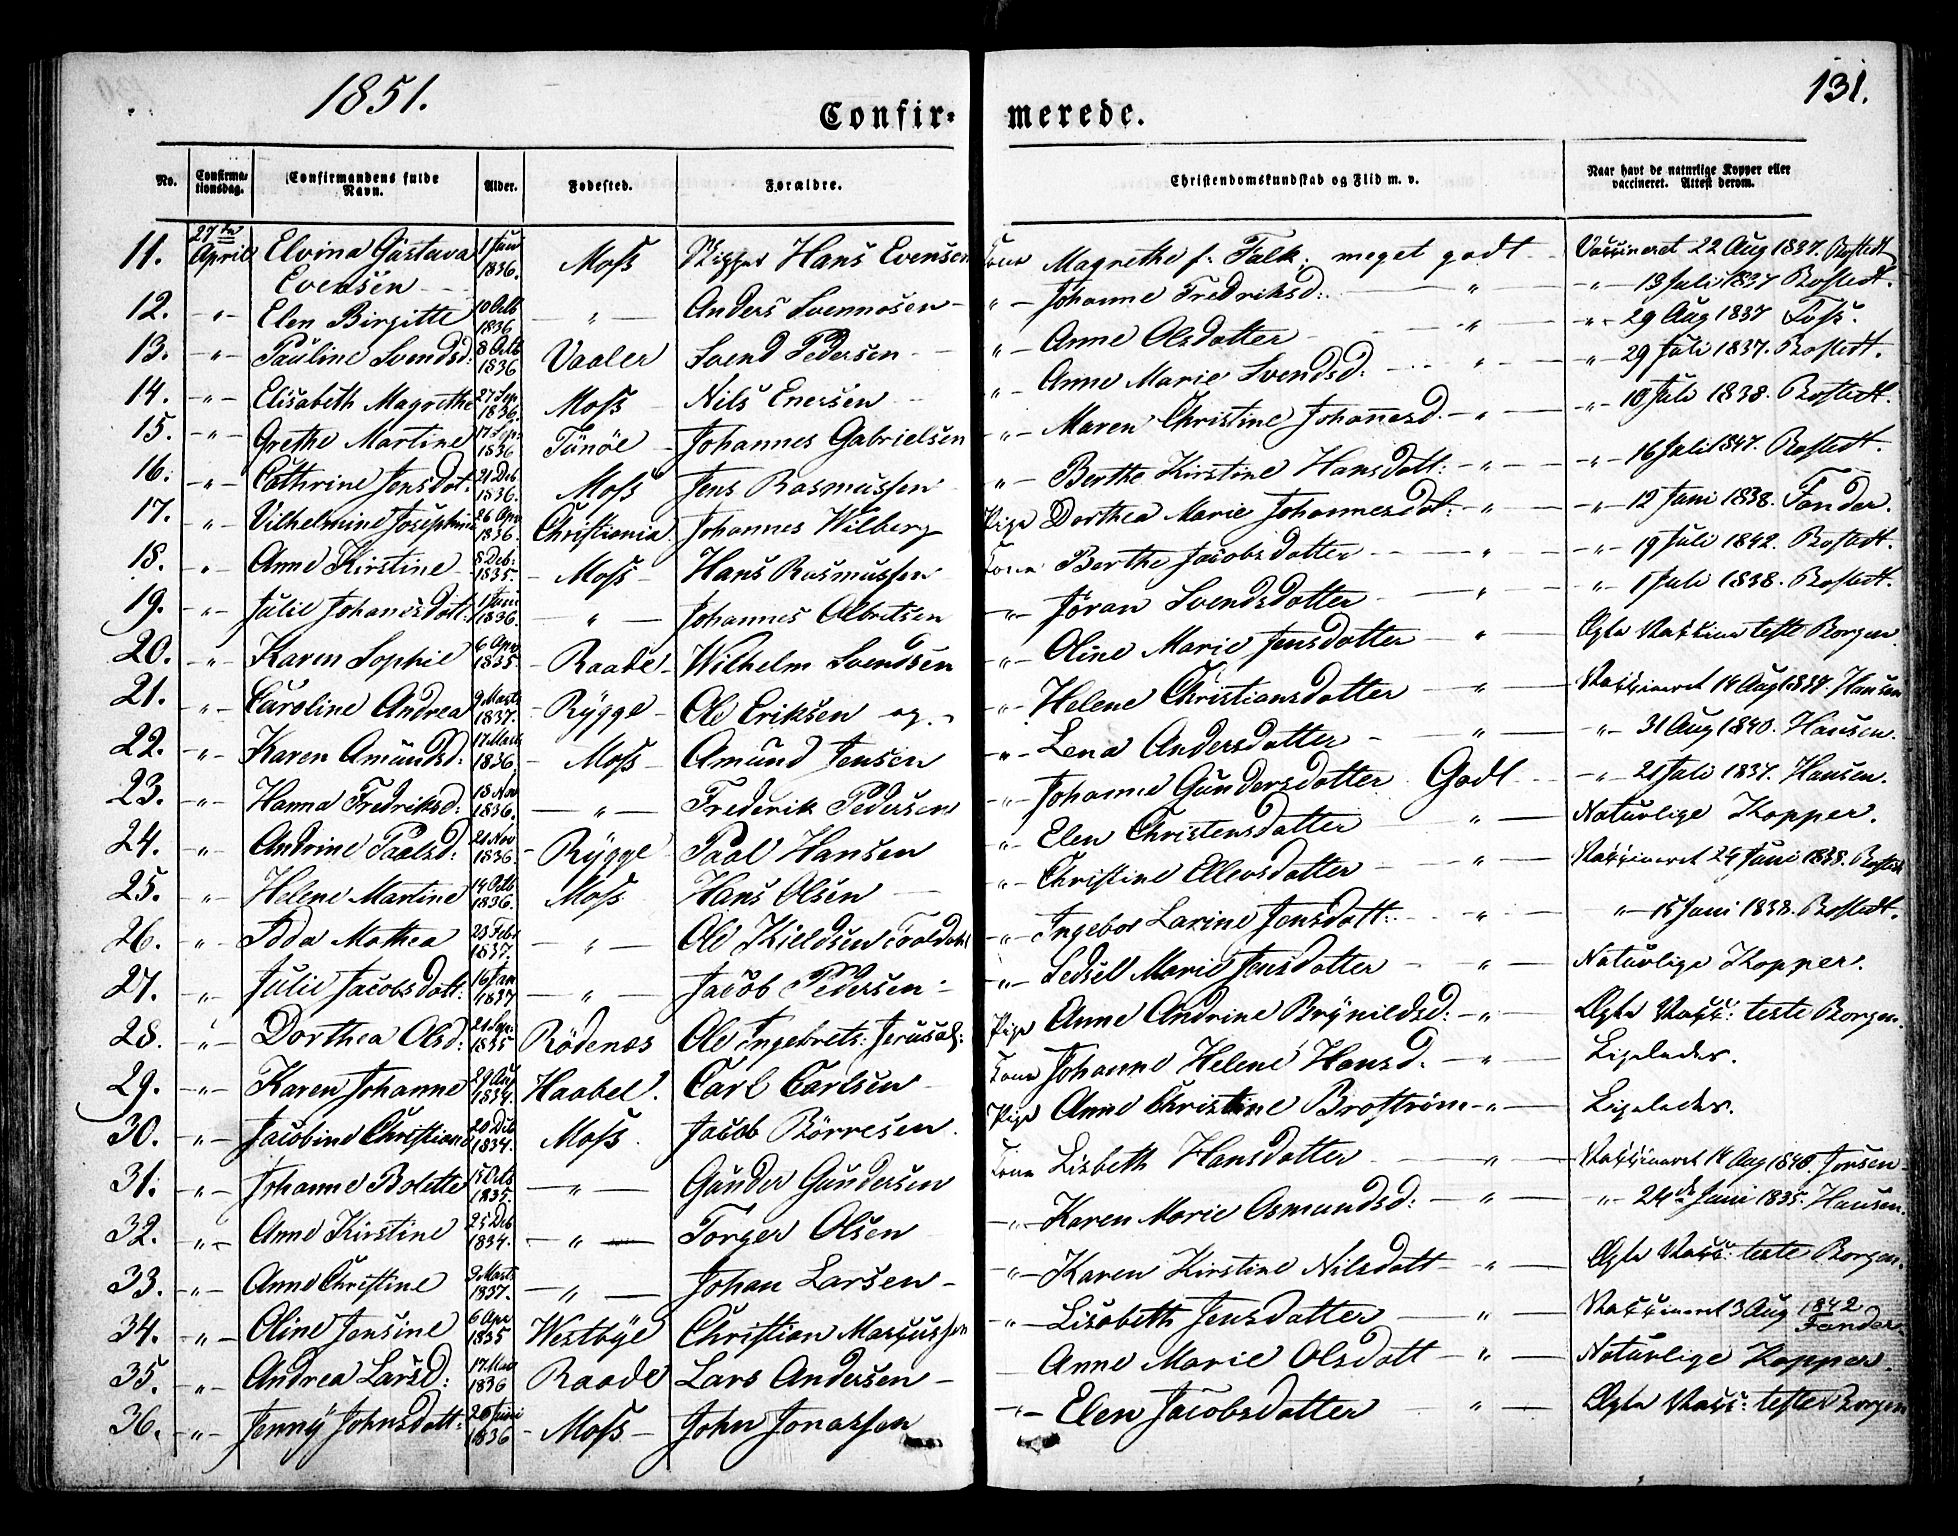 1851.
131.
Confir- merede.
No. Confirma-tionsdag. Confirmandens fulde Navn. Alder. Fødested. Forældre. Christendomskundskab og Flid m. v. Naar havt de naturlige Kopper eller vaccineret. Attest derom.
11. 27te April Elvina Gustava Evensen 1 Jan 1836. Moss Hans Evensen Kone Magrethe f. Falk. meget godt Vaccineret 22 Aug 1837. Bostedt
12. -"- Elen Birgitte 10 Octb 1836. -"- Anders Svennesen "- Johanne Fredriksd: " -"- 13 Juli 1837 Bostedt.
13. -"- Pauline Svendsd: 8 Octb 1836 Vaaler Svend Pedersen "- Anne Olsdatter " -"- 29 Aug 1837 Foss.
14. -"- Elisabeth Magrethe 27 Sep. 1836. Moss Nils Enersen "- Anne Marie Svendsd: " -"- 29 Juli 1837. Bostedt.
15. -"- Grethe Martine 17 Sep. 1836 Tünöe Johannes Gabrielsen -"- Maren Christine Johanesd. -"- -"- 10 Juli 1838. Bostedt.
16. -"- Cathrine Jensdat. 21 Deb 1836. Moss Jens Rasmussen "- Berthe Kirstine Hansdatt: -"- -"- 16 Juli 1847. Bostedt.
17. -"- Vilhelmine Josephine 26 Apr 1836. Christiania Johannes Wilberg Pige Dorthea Marie Johannesdat: -"- -"- 12 Juni 1838. Fander.
18. " Anne Kirstine 8 Deb: 1835. Moss Hans Rasmussen Kone Berthe Jacobsdatter " -"- 19 Juli 1842. Bostedt.
19. -"- Julie Johanesdatt: 1 Juni 1836. -"- Johannes Albretsen -"- Jöran Svendsdatter -"- " 1 Juli 1838. Bostedt.
20. -"- Karen Sophie 6 Apr 1835. Raade Wilhelm Svendsen -"- Oline Marie Jensdatter " Ægte Vaccine teste Borgen
21. " Caroline Andrea 9 Marts 1837. Rygge Ole Eriksen -"- Helene Christiansdatter " Vaccineret 14 Aug 1837. Hansen
22. -"- Karen Amundsd: 17 Marts 1836 Moss Amund Jensen -"- Lena Andersdatter -"- -"- 31 Aug 1840. Hansen.
23. -"- Hanna Fredriksd: 15 Nov 1836. -"- Frederik Pedersen -"- Johanne Gundersdatter Godt -"- 21 Juli 1837. Hansen.
24. " Andrine Paalsd: 21 Nov 1836 Rygge Paal Hansen " Elen Christensdatter -"- Naturlige Kopper.
25. " Helene Martine 14 Octb 1836. Moss Hans Olsen -"- Christine Ellevsdatter " Vaccineret 24 Juni 1838. Bostedt
26. " Idda Mathea 23 Febr 1837. -"- Ole Kieldsen -"- Ingebor Larine Jensdatt: " " 15 Juni 1838. Bostedt.
27. " Julie Jacobsdatt: 16 Jan 1837 -"- Jacob Pedersen -"- Sedsel Marie Jensdatter " Naturlige Kopper.
28. " Dorthea Olsd: 21 Sep. 1835 Rödenæs Ole Ingebrets: Jerusal: Pige Anne Andrine Brynildsd: -"- Ægte Vacc: teste Borgen.
29. -"- Karen Johanne 29 Aug 1834. Haabel. Carl Carlsen Kone Johanne Helene Hansd. " Ligeledes.
30. -"- Jacobine Christiane 20 Deb 1834. Moss. Jacob Börresen. Pige Anne Christine Broström -"- Ligeledes.
31. -"- Johanne Bolette 1835. -"- Gunder Gundersen Kone Lisbeth Hansdatter " Vaccineret 14 Aug 1840. Jensen
32. -"- Anne Kirstine 25 Deb 1834. -"- Torger Olsen -"- Karen Marie Asmundsd: -"- " 24de Juni 1835. Hansen.
33. -"- Anne Christine 9 Marts 1837. -"- Johan Larsen -"- Karen Kirstine Nilsdatt -"- Ægte Vacc: teste Borgen.
34. -"- Oline Jensine 6 Apr 1835 Westbye Christian Marcussen -"- Lisabeth Jensdatter " Vaccineret 3 Aug 1842 Fander.
35. -"- Andrea Larsd. 17 Mar 1836 Raade Lars Andersen - Anne Marie Olsdatt -"- Naturlige Kopper.
36. -"- Jenny Johnsdatt: 26 Juni 1836 Moss John Jonassen -"- Elen Jacobsdatter " Ægte Vacc: teste Borgen